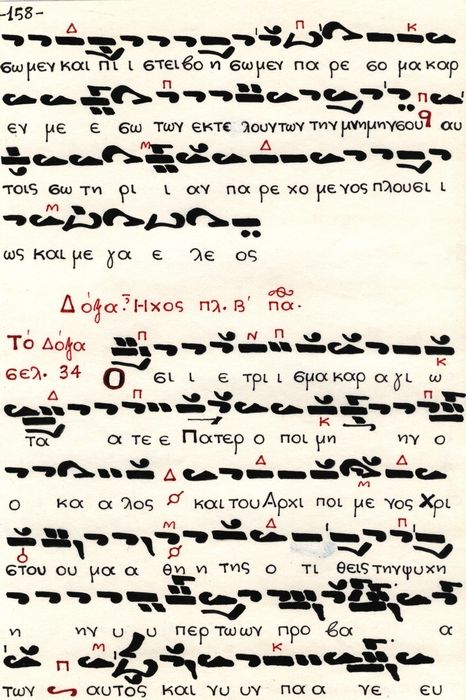 -158-
σωμεν και πι ι στει βο η σωμεν πα ρε σο μα καρ
εν με ε σω των εκτε λουντων την μνημην σου αυ
τοις σω τη ρι ι αν πα ρε χο με νος πλουσι ι
ως και με γα ε λε ος
Δόξα. Ήχος πλ. Β' πα.
Τό Δόξα
σελ. 34
Ο σι ι ε τρι ι σμακαρ α γι ω
τα α τε ε Πατερ ο ποι μη ην ο
ο κα α λος και του Αρχι ποι με νος Χρι
στου ου μα α θη η της ο τι θεις την ψυχη
η ην υ υ περ τωων προ βα α
των αυτος και νυ υν παα γε ευ